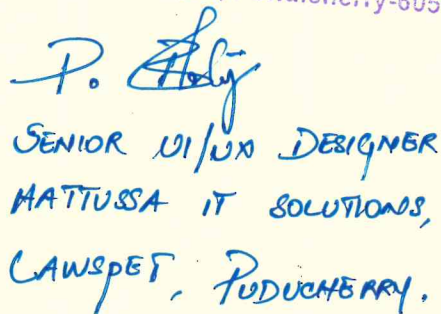 P.
SENIOR UI/UX DESIGNER
HATTUSSA IT SOLUTIONS,
LAWSPET, PUDUCHERRY.